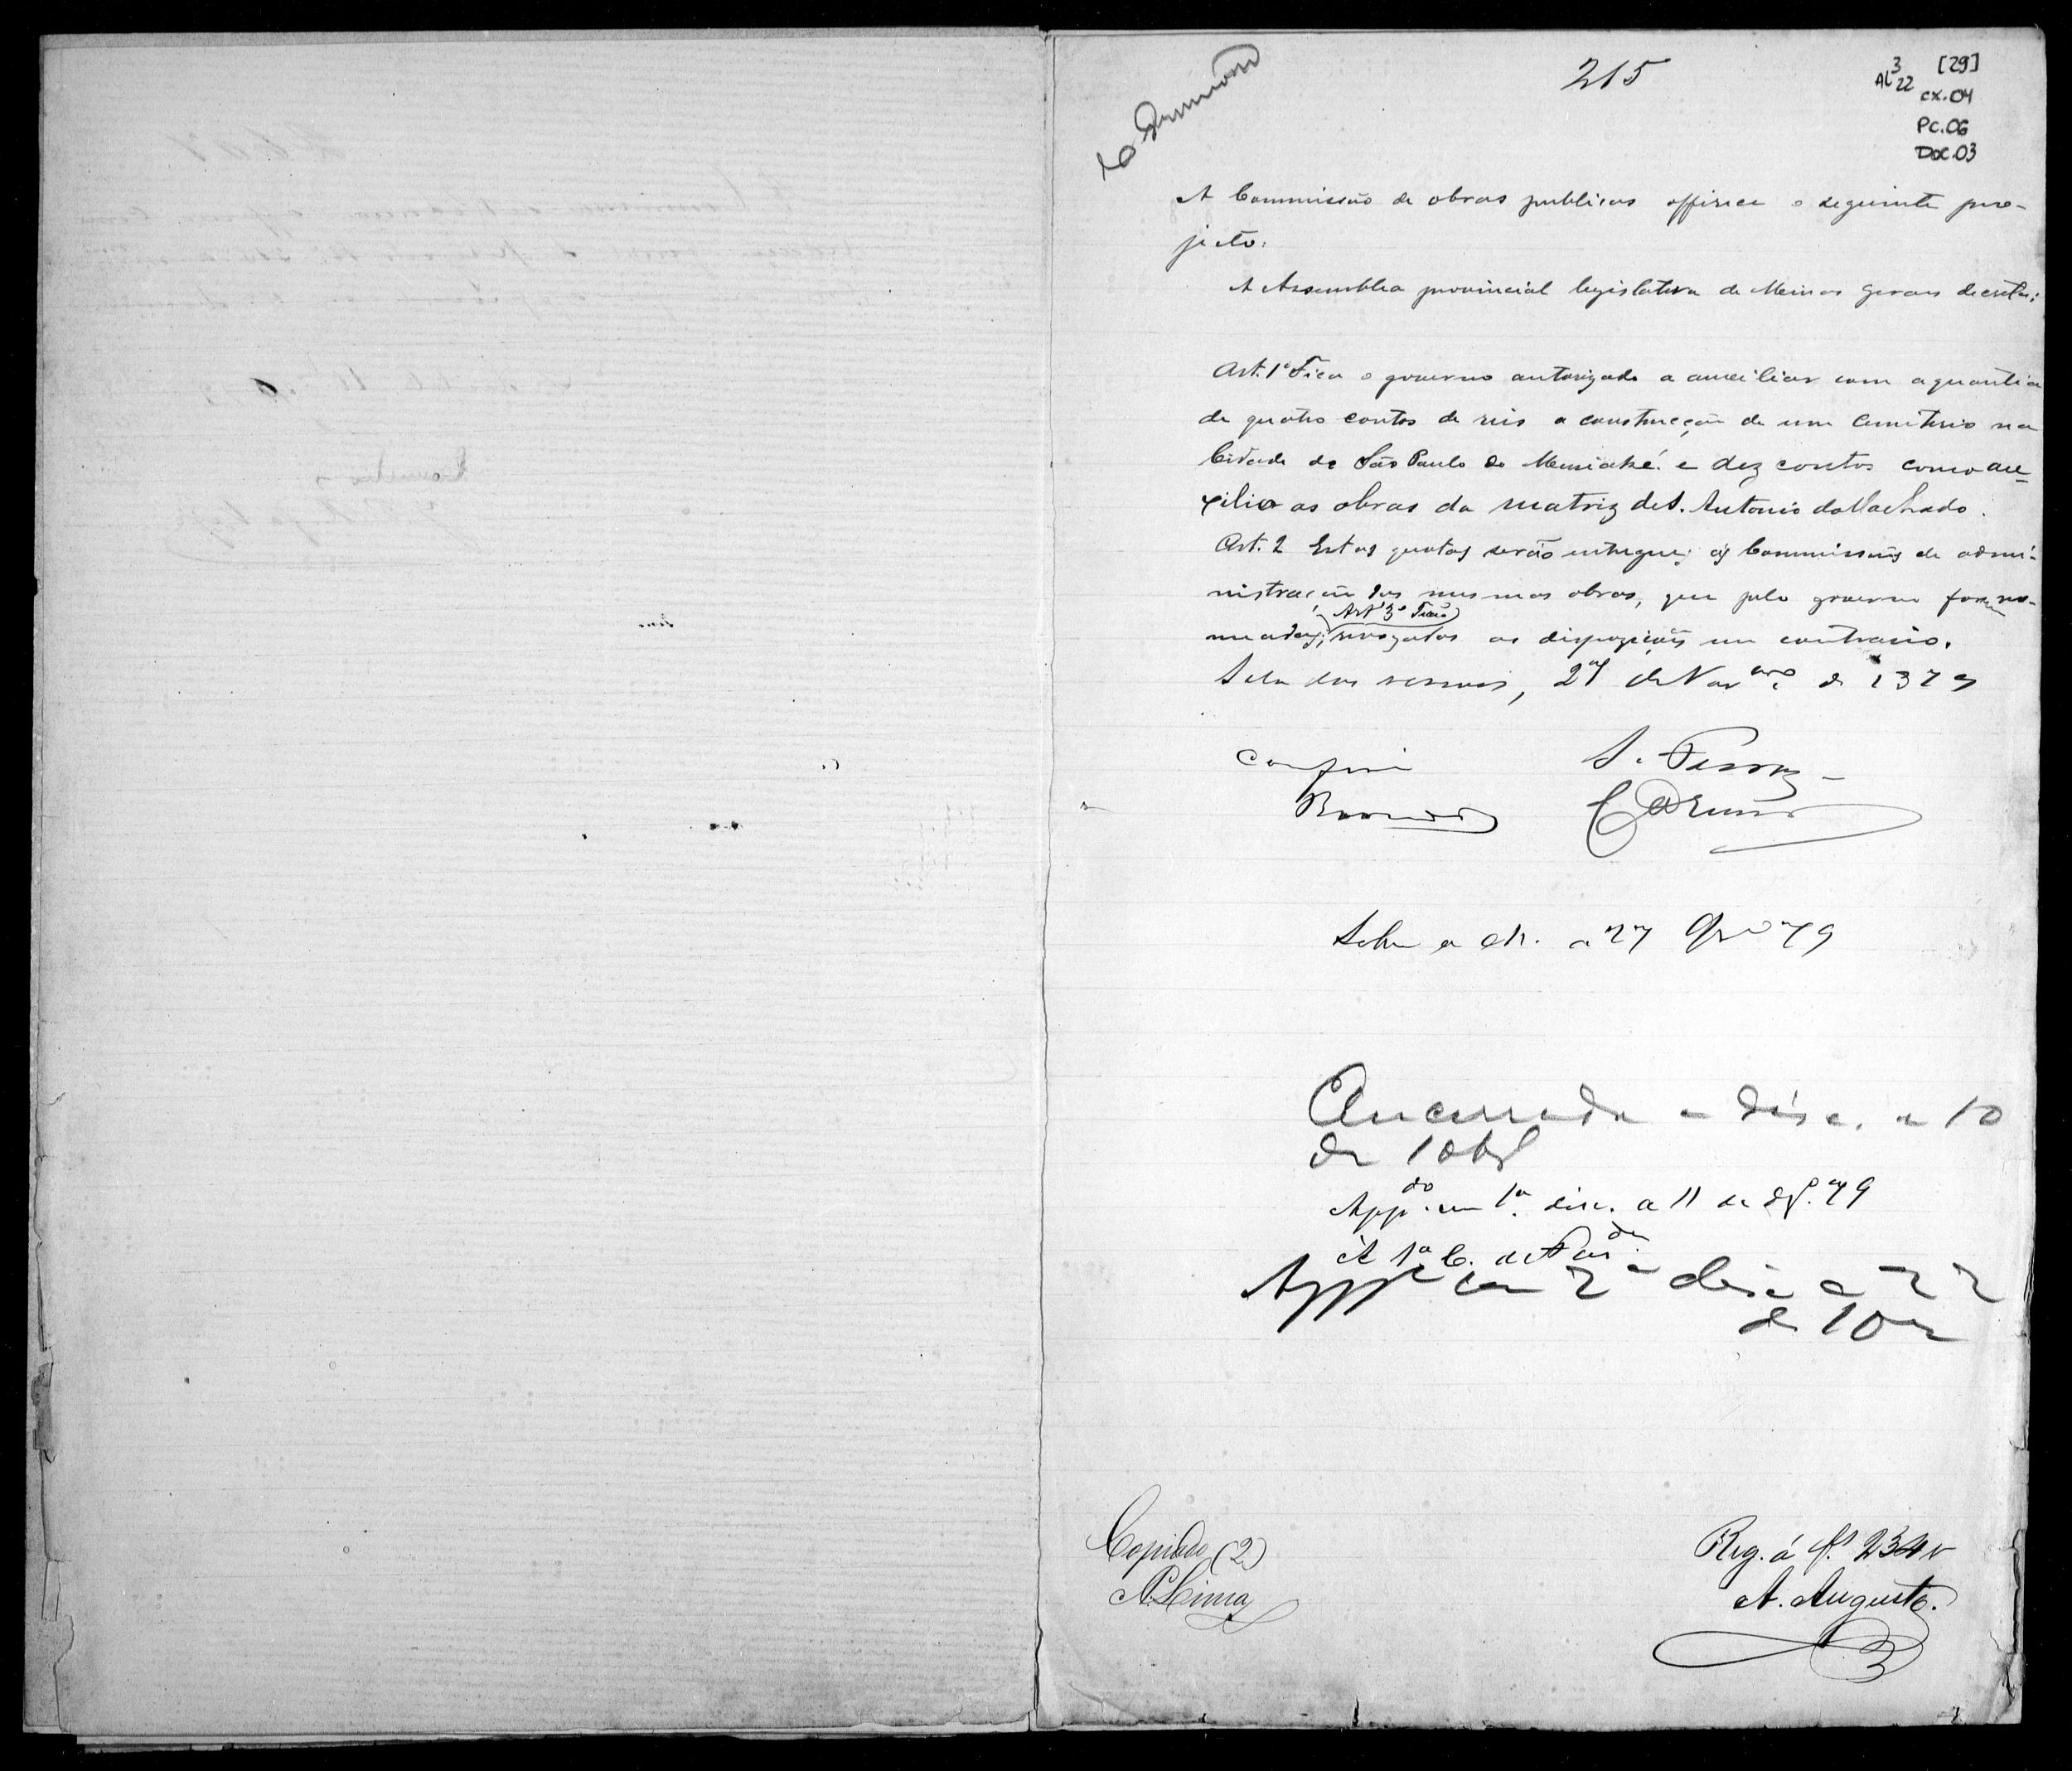 215
AL 3 22 [29]
cx.04
Pc.06
Doc.03
A Commissão de obras publicas offerece o seguinte pro-
jecto:
A Assemblea provincial legislativa de Minas Geraes decreta:
Art. 1º Fica o governo autorizado a auxiliar com a quantia
de quatro contos de reis a construcção de um cemiterio na
Cidade de São Paulo do Muriahé e dez contos como au-
xilio as obras da matriz de S. Antonio do Machado.
Art. 2 Estas quotas serão entregues ás Commissões de admi-
nistração das mesmas obras, que pelo governo forem no-
meadas; Art 3º Ficão revogadas as disposições em contrario.
Sala das sessões, 27 de Novbro de 1879
S. Ferraz
Sobre a m. a 27 9bro 79
Encerrada a disc. a 10
de 10bro
Appdo. em 1ª. disc. a 11 de 79
Á 1ª C. de Fazda.
Appº em 2ª disc a 22
de 10bro
Copiado (2)
A. Lima
Reg. á fs 234 v
A. Augusto.